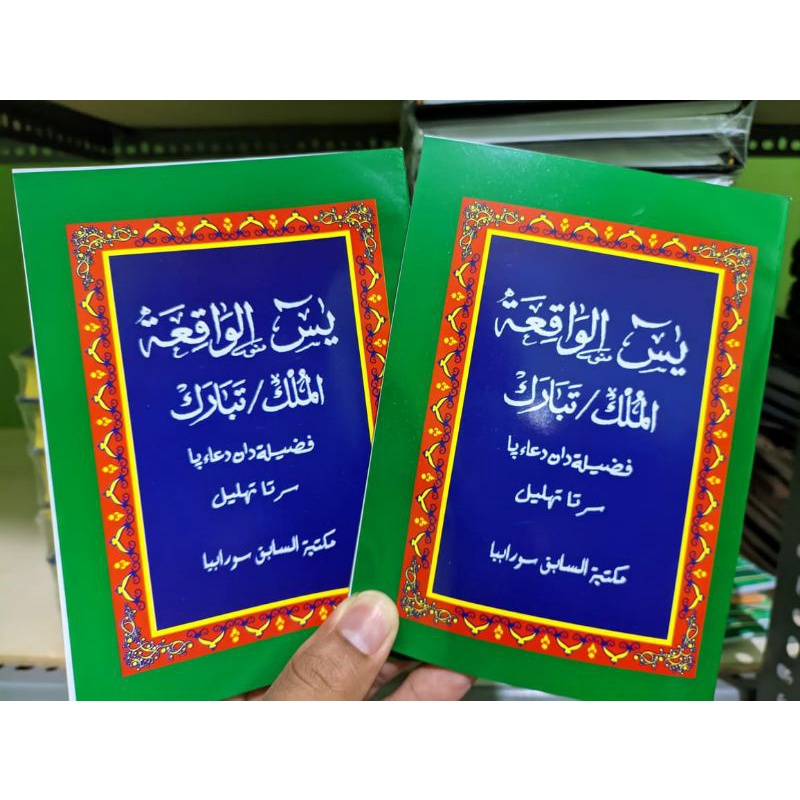 يٰسٓ الْوَاقِعَة
الْمُلْك / تَبَارَك
فضيلة دان دعاءيا
سرتا تهليل
مكتبة السابق سورابيا
يٰسٓ الْوَاقِعَة
الْمُلْك / تَبَارَك
فضيلة دان دعاءيا
سرتا تهليل
مكتبة السابق سورابيا